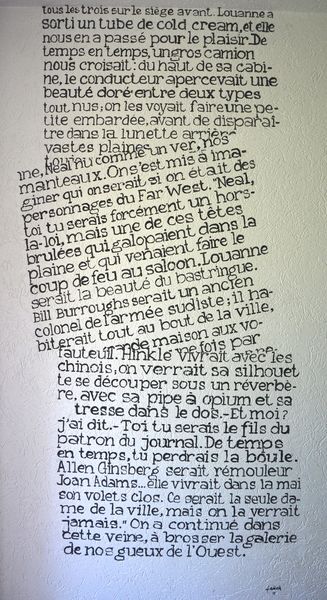 tous les trois sur le siège avant. Louanne a
sorti un tube de cold cream, et elle
nous en a passé pour le plaisir. De
temps en temps, un gros camion
nous croisait: du haut de sa cabi-
ne, le conducteur apercevait une
beauté dorée entre deux types
tout nus; on les voyait faire une pe-
tite embardée, avant de disparaî-
tre dans la lunette arrière
vastes plaines
ne, Neal nu comme un ver, nos
manteaux. On s'est mis à ima-
giner qui on serait si on était des
personnages du Far West. "Neal,
toi tu serais forcément un hors-
la-loi, mais une de ces têtes
brulées qui galopaient dans la
plaine et qui venaient faire le
coup de feu au saloon. Louanne
serait la beauté du bastringue.
Bill Burroughs serait un ancien
colonel de l'armée sudiste; il ha-
biterait tout au bout de la ville,
maison aux vo-
fois par
fauteuil. Hinkle vivrait avec les
chinois, on verrait sa silhouet
te se découper sous un réverbè-
re, avec sa pipe à opium et sa
tresse dans le dos. - Et moi?
j'ai dit. - Toi tu serais le fils du
patron du journal. De temps
en temps, tu perdrais la boule.
Allen Ginsberg serait rémouleur
Joan Adams... elle vivrait dans la mai
son volets clos. Ce serait la seule da-
me de la ville, mais on la verrait
jamais." On a continué dans
cette veine, à brosser la galerie
de nos gueux de l'Ouest.